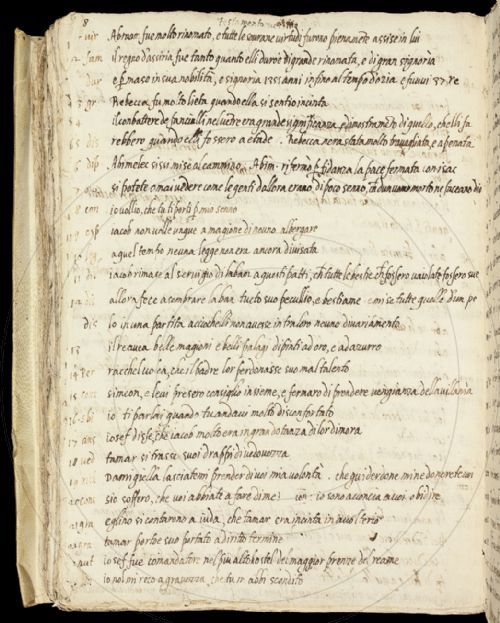 8 Testamento vecchio
vir Abram fue molto rinomato, e tutte le sourane virtudi furono pienamente assise in lui
sum il regno d'assiria fue tanto quanto elli durò di grande rinomata, e di gran signoria
e rimase in sua nobiltà, e signoria 1235 anni infino al tempo d'ozia. e furui 37 re
gr Rebecca fu molto lieta quando ella si sentio incinta
il combattere de fanciulli nel uētre era grande significanza, e dimostramēto di quello, che elli fa
rebbero quando elli fossero a etade. Rebecca non era stata molto trauagliata, e apenata
dip Abimelec si si mise al cammino. Abim. riferno fidanza la pace fermata con isac
dis si potete ancu vedere come le genti d'allora erano di poco senno, che d'un uomo morto ne faceano dio
8 con io voglio, che tu ti porti per mio senno
iacob non volle ungue a magione di neuno albergare
aquel tempo neuna legge non era ancora diuisata
11 di iacob rimase al seruigio di laban a questi patti, che tutte le bestie che fossero vaiolate fossero sue
dis allora fece acombrare laban tutto suo peculio, e bestiame. e mise tutte quelle d'un pe
dis lo in una partita acciochelli non auesse in tra loro neuno diuariamento
13 il re auea belle magioni e belli palagi dipinti ad oro, e ad azurro
14 per racchel uolea, che il padre lor perdonasse suo mal talento
15 simeon, e leui presero consiglio insieme, e fermaro di prendere vengianza della villania
16 io ti parlai quando tu andaui molto disconfortato
17 ans iosef disse, che iacob molto era in gran dottanza di lor dimora
18 ved tamar si trasse suoi drappi di vedouezza
Damigella lasciatemi prender di voi mia volontà. che qui derdone mi ne donerete voi
con sio soffero, che voi abbiate a fare di me? con. io sono acconcia a voi obidire
gra eglino si contareno a iuda, che tamar era incinta in auolterio
gra tamar portoe suo portato a diritto termine
iosef fue comandatore nel più alto hostel del maggior prenze del reame
io nol mi reco a grauezza, che tu m'abbi scondito